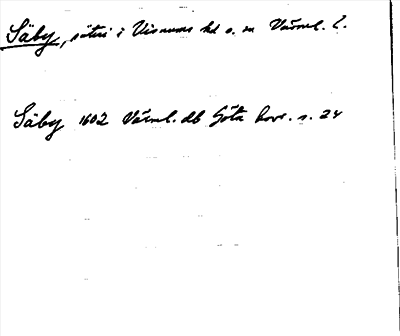 Säby, säteri i Visnums hd o. sn Värml. l.
Säby 1602 Värml. db Göta hovr. s. 24